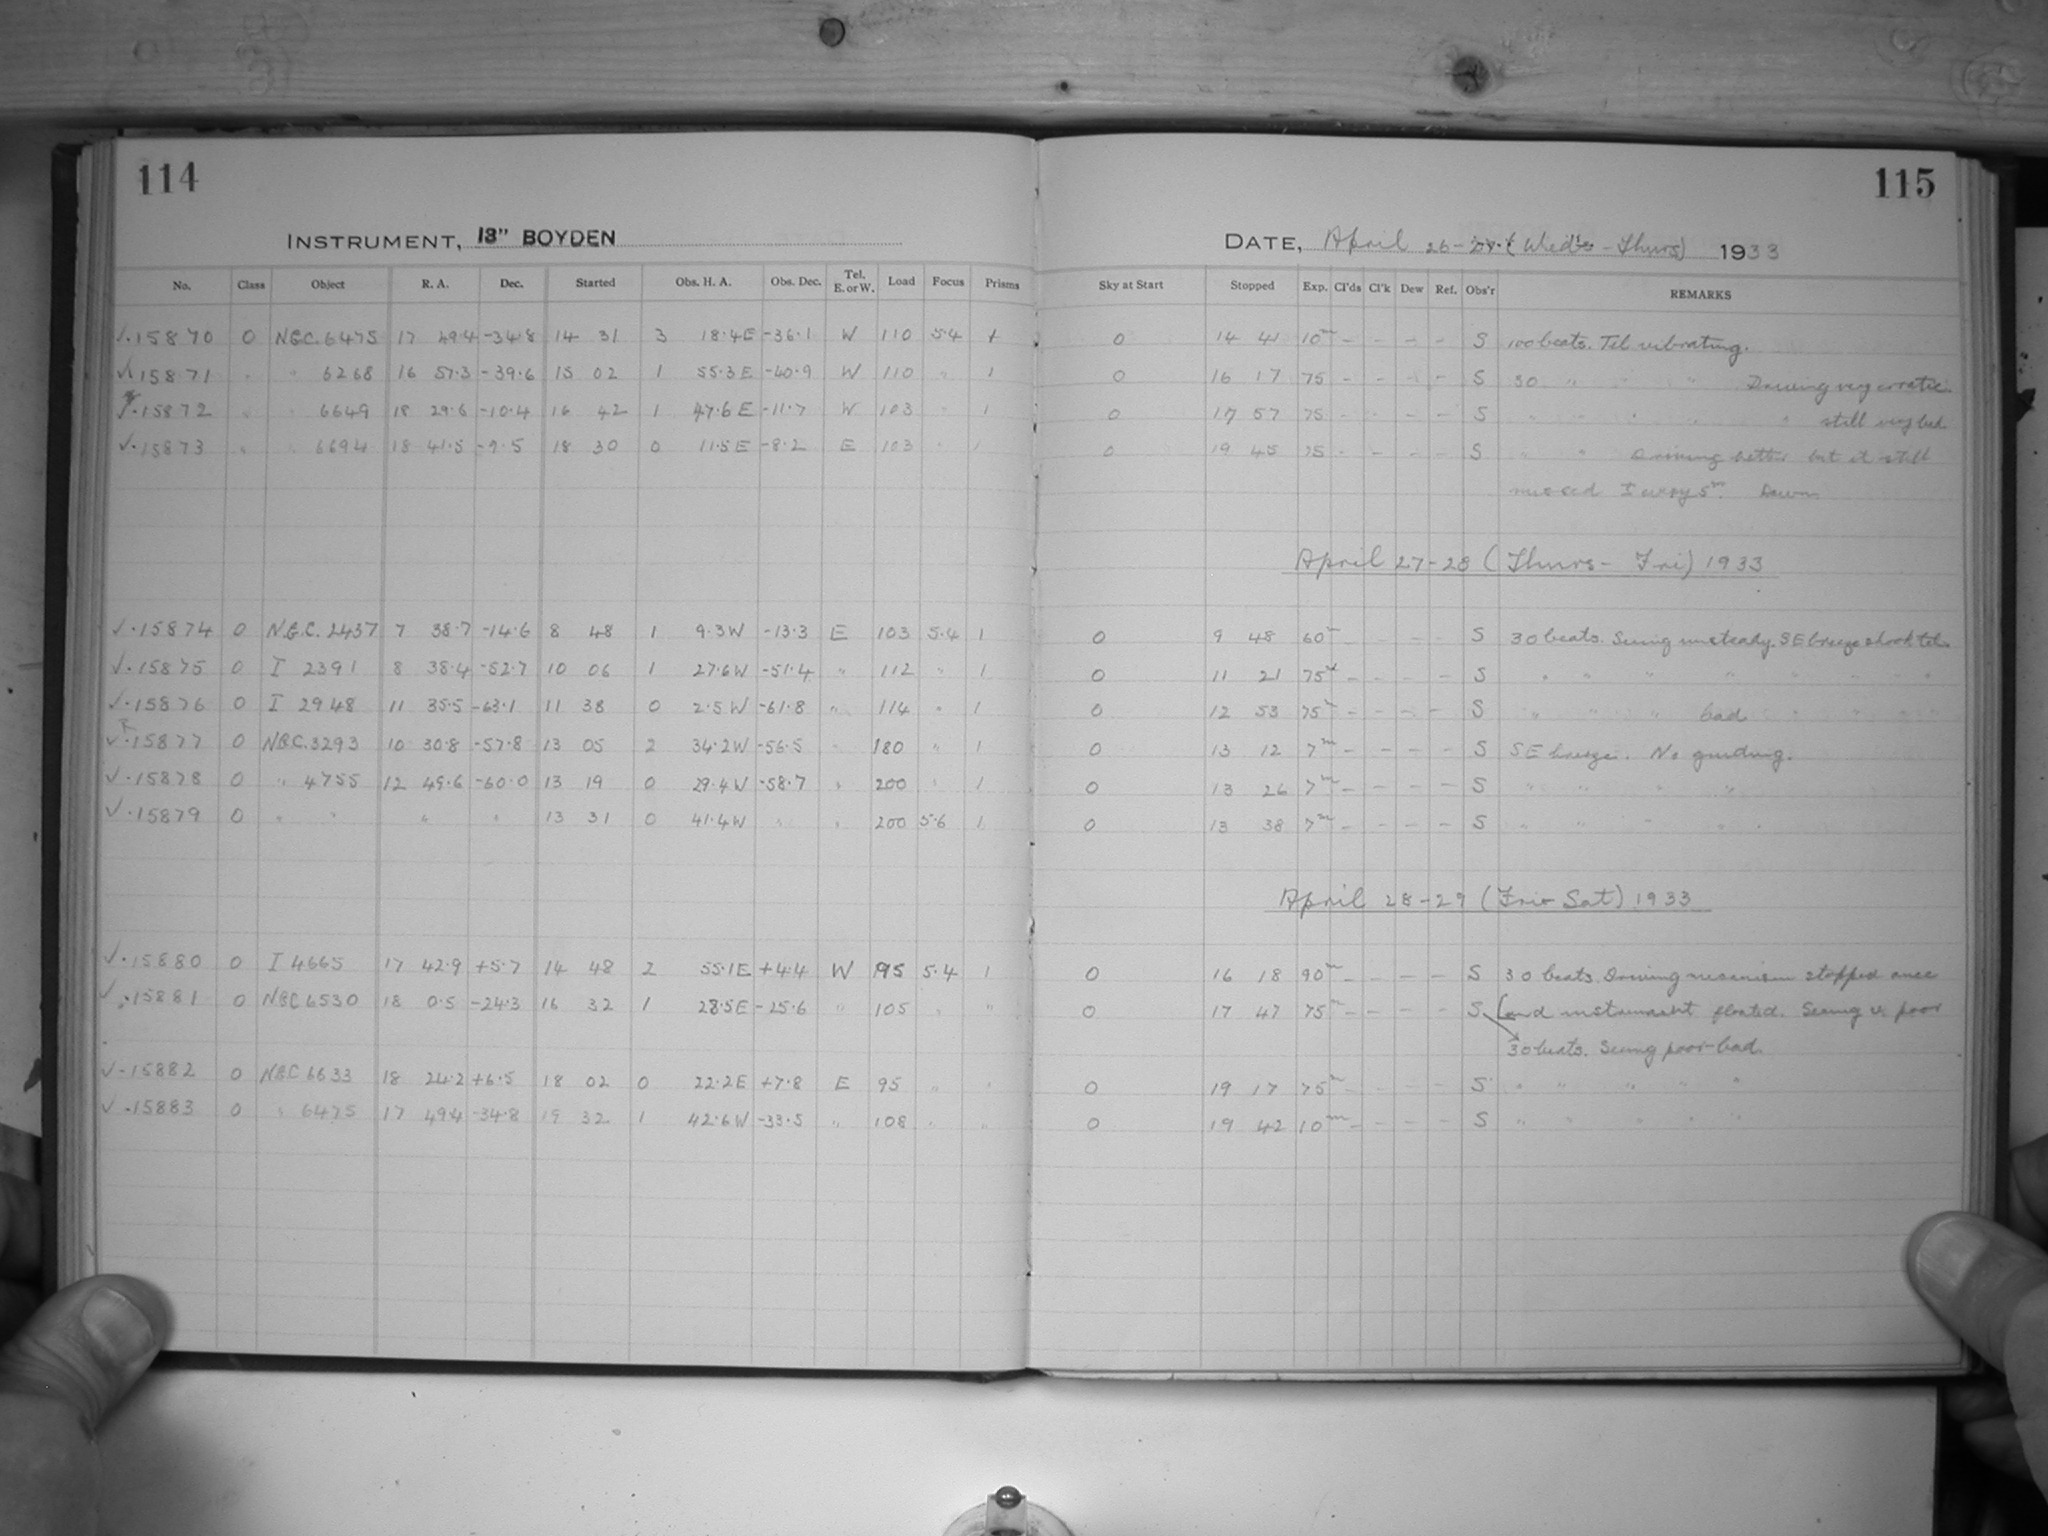 114
INSTRUMENT, 13" BOYDEN
No. Class Object R. A. Dec. Started Obs. H. A. Obs. Dec. Tel. E. or W. Load Focus Prisms
✓·15870 0 N.G.C. 6475 17 49.4 -34.8 14 31 3 18.4E -36.1 W 110 5.4 1
✓·15871 " " 6268 16 57.3 -39.6 15 02 1 55.3E -40.9 W 110 " 1
·15872 " " 6649 18 29.6 -10.4 16 42 1 47.6E -11.7 W 103 " 1
✓·15873 " " 6694 18 41.5 -9.5 18 30 0 11.5E -8.2 E 103 " 1
✓·15874 0 N.G.C. 2437 7 38.7 -14.6 8 48 1 9.3W -13.3 E 103 5.4 1
✓·15875 0 I 2391 8 38.4 -52.7 10 06 1 27.6W -51.4 " 112 " 1
✓·15876 0 I 2948 11 35.5 -63.1 11 38 0 2.5W -61.8 " 114 " 1
✓·15877 0 N.G.C. 3293 10 30.8 -57.8 13 05 2 34.2W -56.5 " 180 " 1
✓·15878 0 " 4755 12 49.6 -60.0 13 19 0 29.4W -58.7 " 200 " 1
✓·15879 0 " " " " 13 31 0 41.4W " " 200 5.6 1
✓·15880 0 I 4665 17 42.9 +5.7 14 48 2 55.1E +4.4 W 95 5.4 1
✓·15881 0 NGC 6530 18 0.5 -24.3 16 32 1 28.5E -25.6 " 105 " "
✓-15882 0 NGC 6633 18 24.2 +6.5 18 02 0 22.2E +7.8 E 95 " "
✓-15883 0 " 6475 17 49.4 -34.8 19 32 1 42.6W -33.5 " 108 " "
115
DATE, April 26-27 (Wed's - Thurs) 1933
Sky at Start Stopped Exp. Cl'ds Cl'k Dew Ref. Obs'r REMARKS
0 14 41 10m - - - - S 100 beats. Tel vibrating.
0 16 17 75 - - - - S 30 " " " Driving very erratic
0 17 57 75 - - - - S " " " " " still very bad
0 19 45 75 - - - - S " " Driving better but it still
missed I every 5m. Dawn
April 27-28 (Thurs - Fri) 1933
0 9 48 60m - - - - S 30 beats. Seeing unsteady. SE breeze shook tel.
0 11 21 75m - - - - S " " " " " " " "
0 12 53 75m - - - - S " " " bad " " " "
0 13 12 7m - - - - S SE breeze. No guiding.
0 13 26 7m - - - - S " " " "
0 13 38 7m - - - - S " " " "
April 28-29 (Fri - Sat) 1933
0 16 18 90m - - - - S 30 beats. Driving stopped once
0 17 47 75m - - - - S [and instrument floated. Seeing v. poor
30 beats. Seeing poor-bad.
0 19 17 75m - - - - S " " " " "
0 19 42 10m - - - - S " " " " "